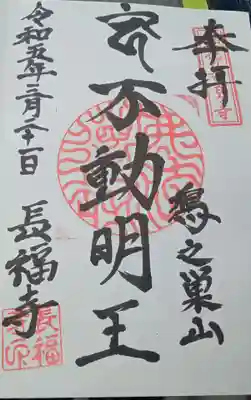 奉拝
之巣山
不動明王
令和五年二月二十一日
長福寺
長福寺印